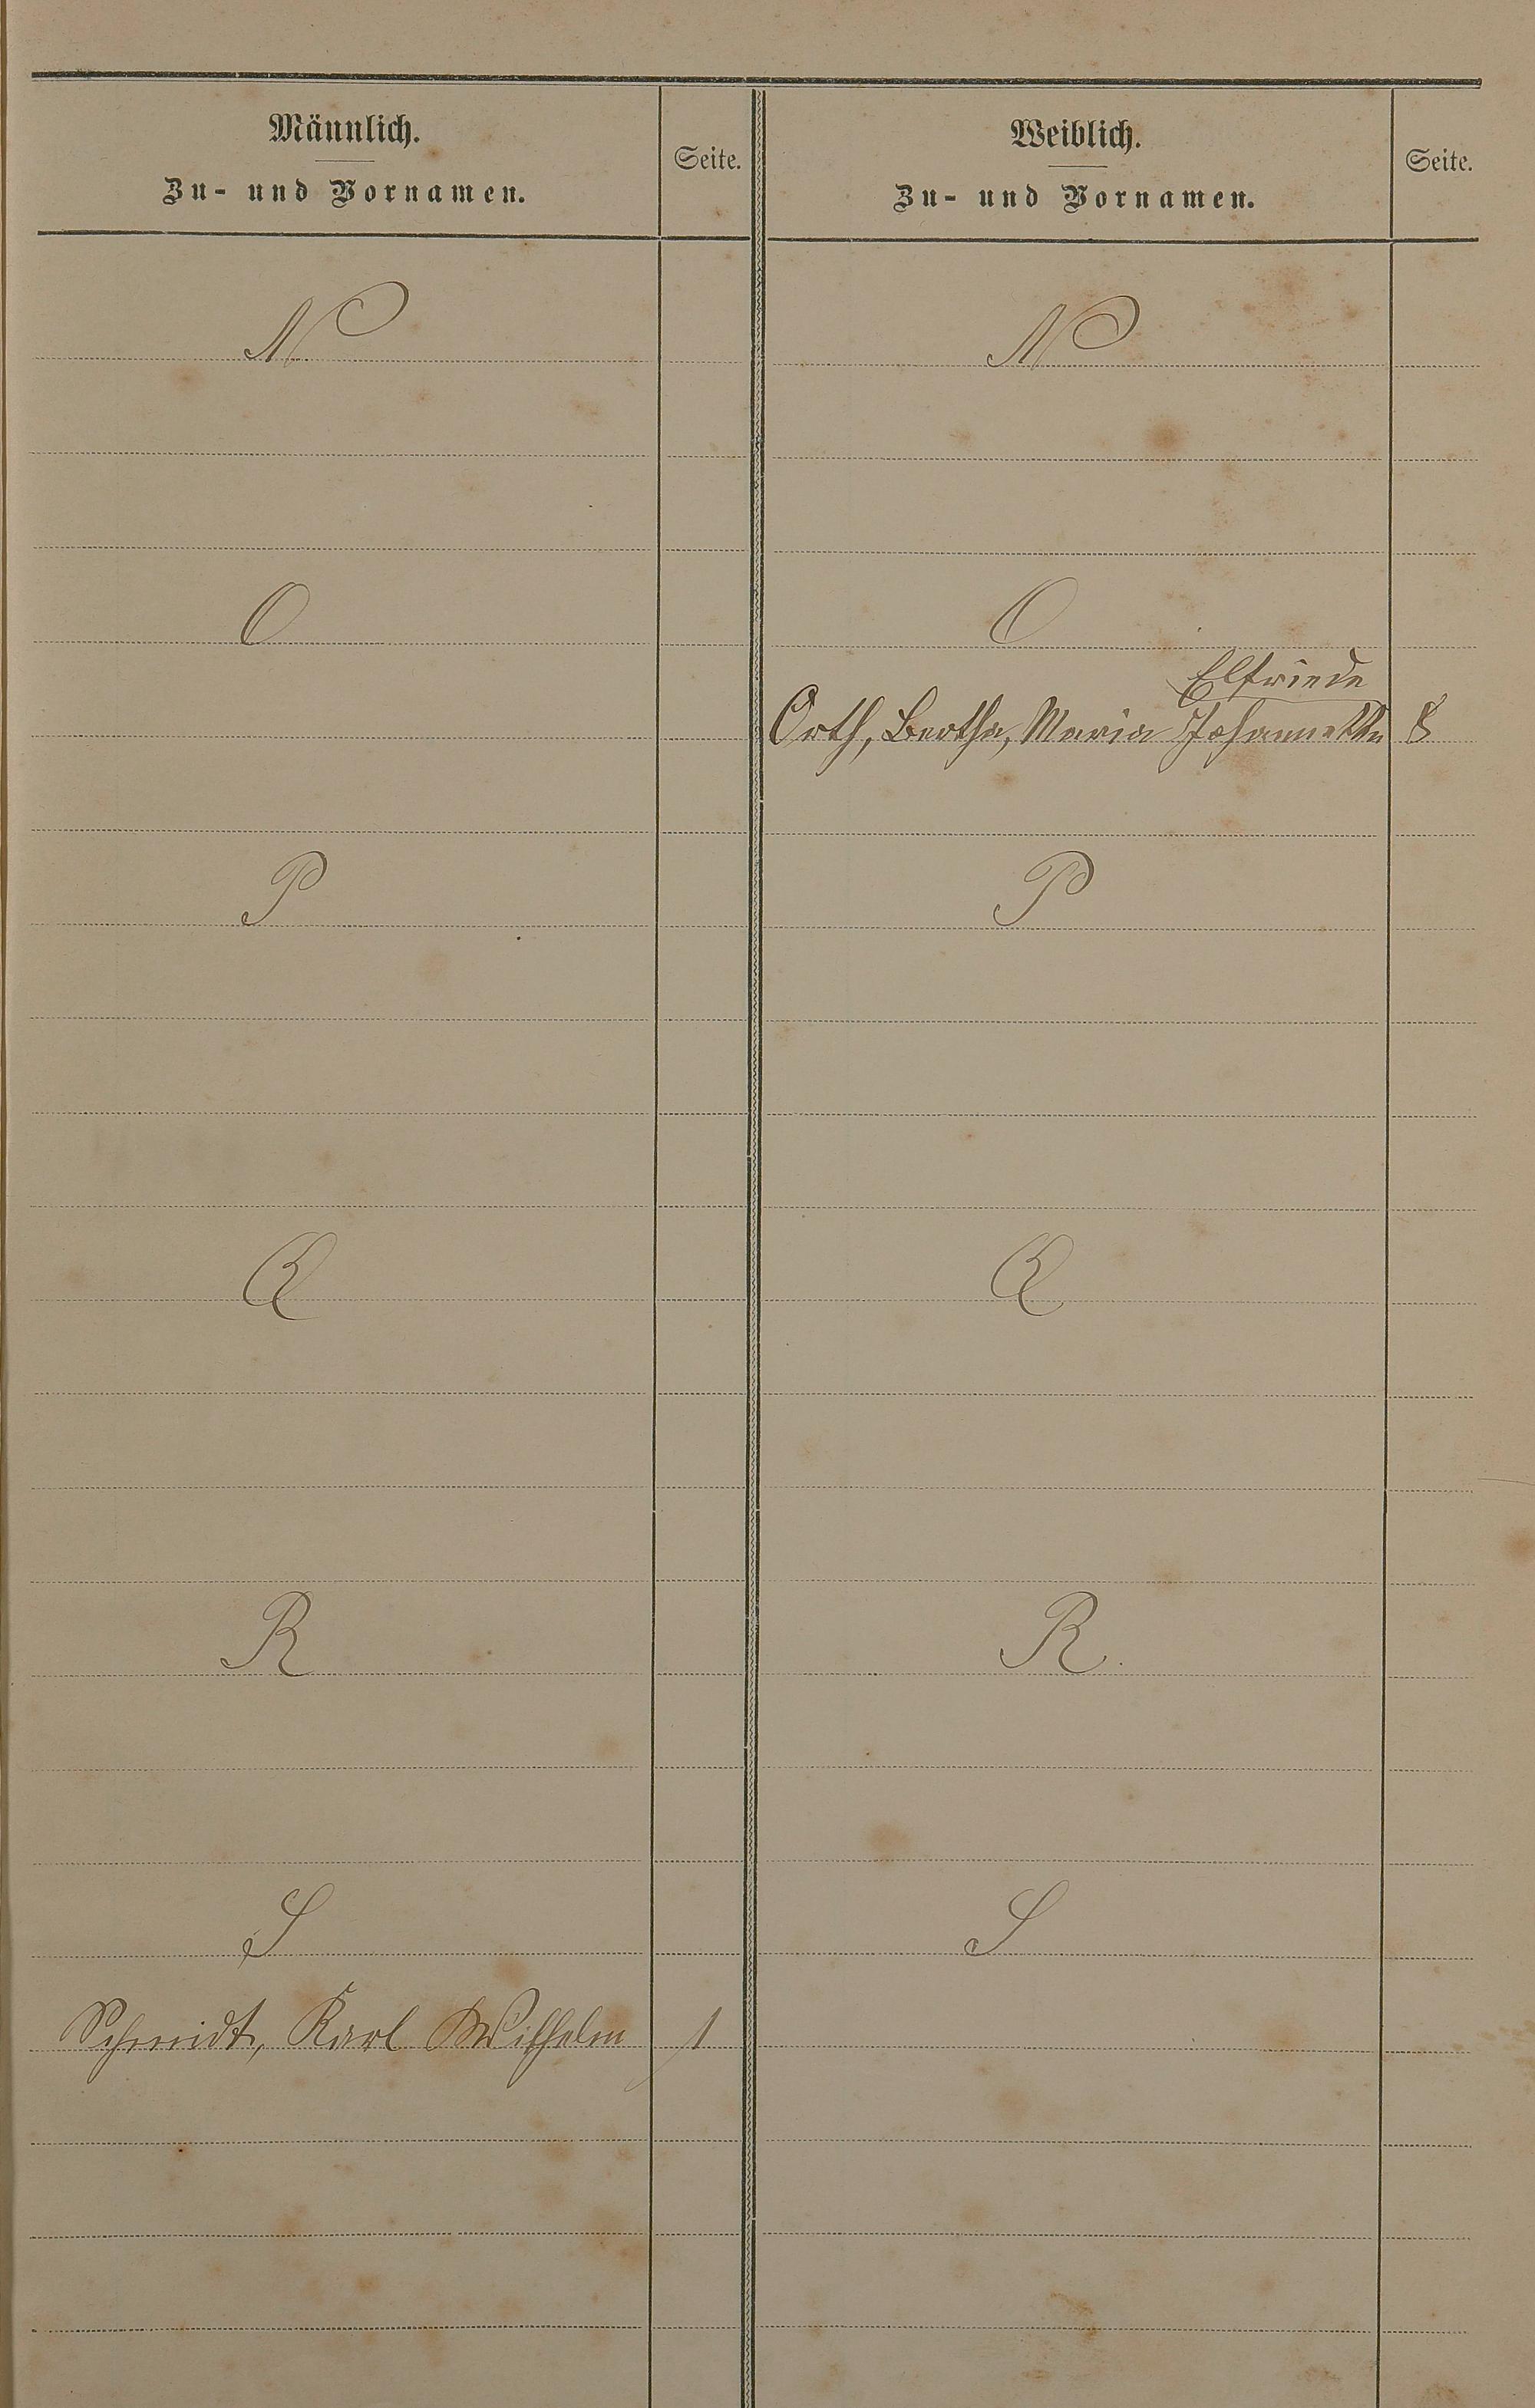 Männlich.
Zu- und Vornamen.
Seite.
Weiblich.
Zu- und Vornamen.
Seite.
N
N
O
O
Elfriede
Orth, Bertha, Maria Johannette 8
P
P
Q
Q
R
R.
S
S
Schmidt, Karl Wilhelm 1